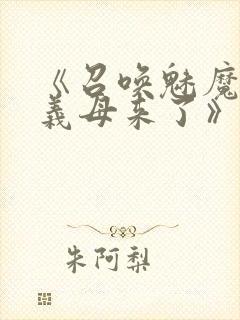 《召唤魅魔
義母来了》
朱阿梨